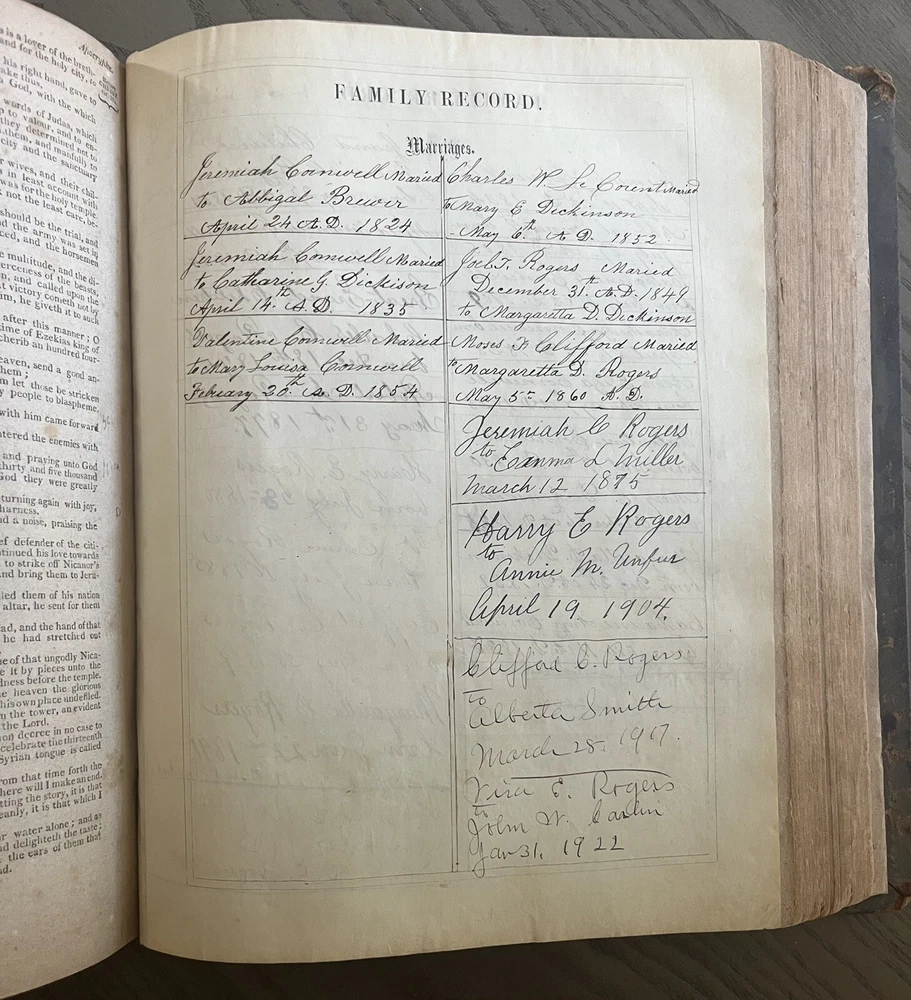 FAMILY RECORD.
Marriages.
Jeremiah Cornwell Maried
to Abbigal Brewer
April 24 A.D. 1824
Jeremiah Cornwell Maried
to Catharine G. Dickison
April 14th A.D. 1835
Valentine Cornwell Maried
to Mary Louisa Cornwell
Febuary 20th A.D. 1854
Charles W. Le Count Maried
to Mary E Dickinson
May 6th A D. 1852
Joel T. Rogers Maried
December 31st A.D. 1849
to Margaretta D. Dickinson
Moses F Clifford Maried
to Margaretta D. Rogers
May 5th 1860 A.D.
Jeremiah C Rogers
to Emma L Miller
March 12 1875
Harry E Rogers
to
Annie M.
April 19 1904.
Clifford C. Rogers
to
Alberta Smith
March 28, 1917.
E. Rogers
to
John W.
Jan 31, 1922
his right hand, gave to
words of Judas, which
they determined not to
city and the sanctuary
wives, and their chil-
in least account with
was for the holy temple.
not the least care, be-
should be the trial, and
the army was set in
and the horsemen
multitude, and the di-
of the beasts,
and called upon the
victory cometh not by
he giveth it to such
after this manner; O
time of Ezekias king of
an hundred four-
send a good an-
let those be stricken
people to blaspheme,
with him came forward
the enemies with
and praying unto God
thirty and five thousand
God they were greatly
turning again with joy,
harness.
a noise, praising the
defender of the citi-
tinued his love towards
to strike off Nicanor's
and bring them to Jeru-
led them of his nation
altar, he sent for them
and the hand of that
he had stretched out
of that ungodly Nica-
it by pieces unto the
before the temple.
heaven the glorious
his own place undefiled.
the tower, an evident
the Lord.
decree in no case to
celebrate the thirteenth
Syrian tongue is called
from that time forth the
here will I make an end.
the story, it is that
it is that which I
water alone; and as
delighteth the taste;
the ears of them that